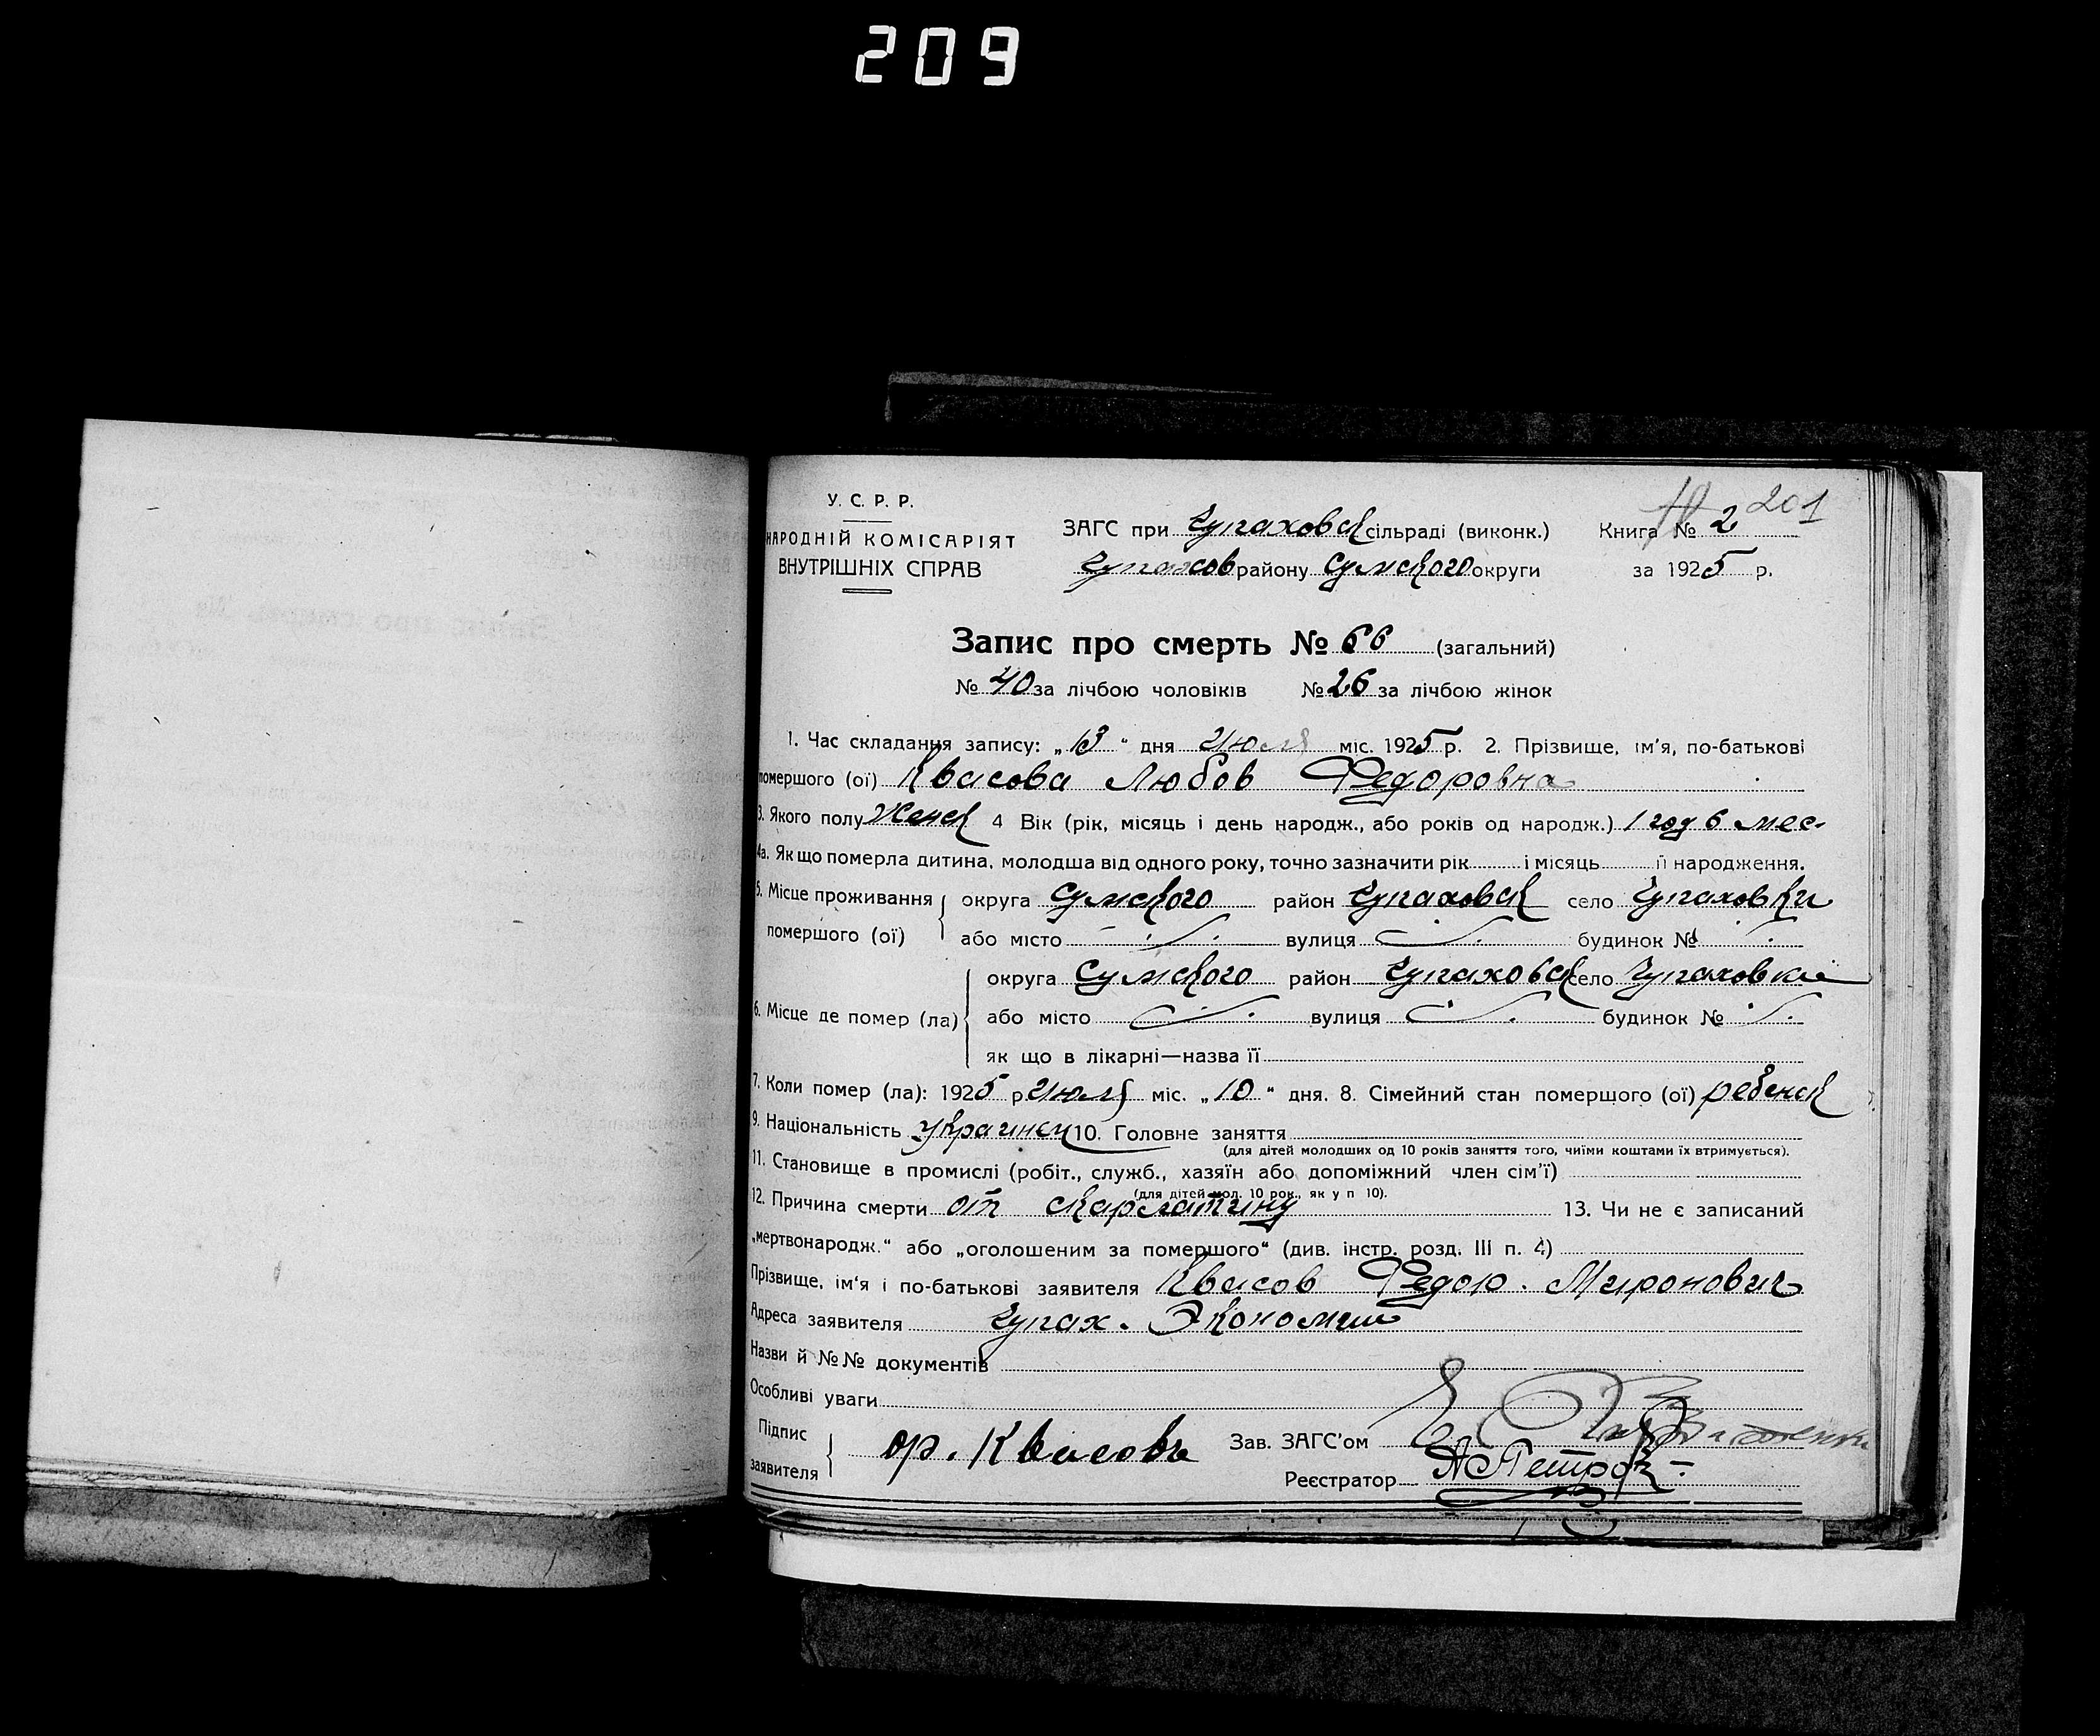 209
201
У. С. Р. Р.
НАРОДНІЙ КОМІСАРІЯТ
ВНУТРІШНІХ СПРАВ
ЗАГС при Чупаховск сільраді (виконк.)
Чупахов району Сумского округи
Книга № 2
за 1925 р.
Запис про смерть № 66 (загальний)
№ 40 за лічбою чоловіків № 26 за лічбою жінок
1. Час складання запису: „13“ дня Июля міс. 1925 р. 2. Прізвище, ім'я, по-батькові
помершого (ої) Квасова Любов Федоровна
3. Якого полу Женск 4 Вік (рік, місяць і день народж., або років од народж.) 1 год 6 мес.
4а. Як що померла дитина, молодша від одного року, точно зазначити рік і місяць її народження.
5. Місце проживання помершого (ої)
округа Сумского район Чупаховск село Чупаховки
або місто вулиця будинок №
6. Місце де помер (ла)
округа Сумского район Чупаховск село Чупаховки
або місто вулиця будинок №
як що в лікарні—назва її
7. Коли помер (ла): 1925 р Июля міс. „10“ дня. 8. Сімейний стан помершого (ої) ребенск
9. Національність Украинск 10. Головне заняття
(для дітей молодших од 10 років заняття того, чиїми коштами їх втримується).
11. Становище в промислі (робіт., служб., хазяїн або допоміжний член сім'ї)
(для дітей мол. 10 рок., як у п 10).
12. Причина смерти от скарлатину 13. Чи не є записаний
„мертвонародж.“ або „оголошеним за помершого“ (див. інстр. розд. III п. 4)
Прізвище, ім'я і по-батькові заявителя Квасов Федор. Миронович
Адреса заявителя Чупах. Экономии
Назви й №№ документів
Особливі уваги
Підпис заявителя
ор. Квасовъ
Зав. ЗАГС'ом
Реєстратор А Петров